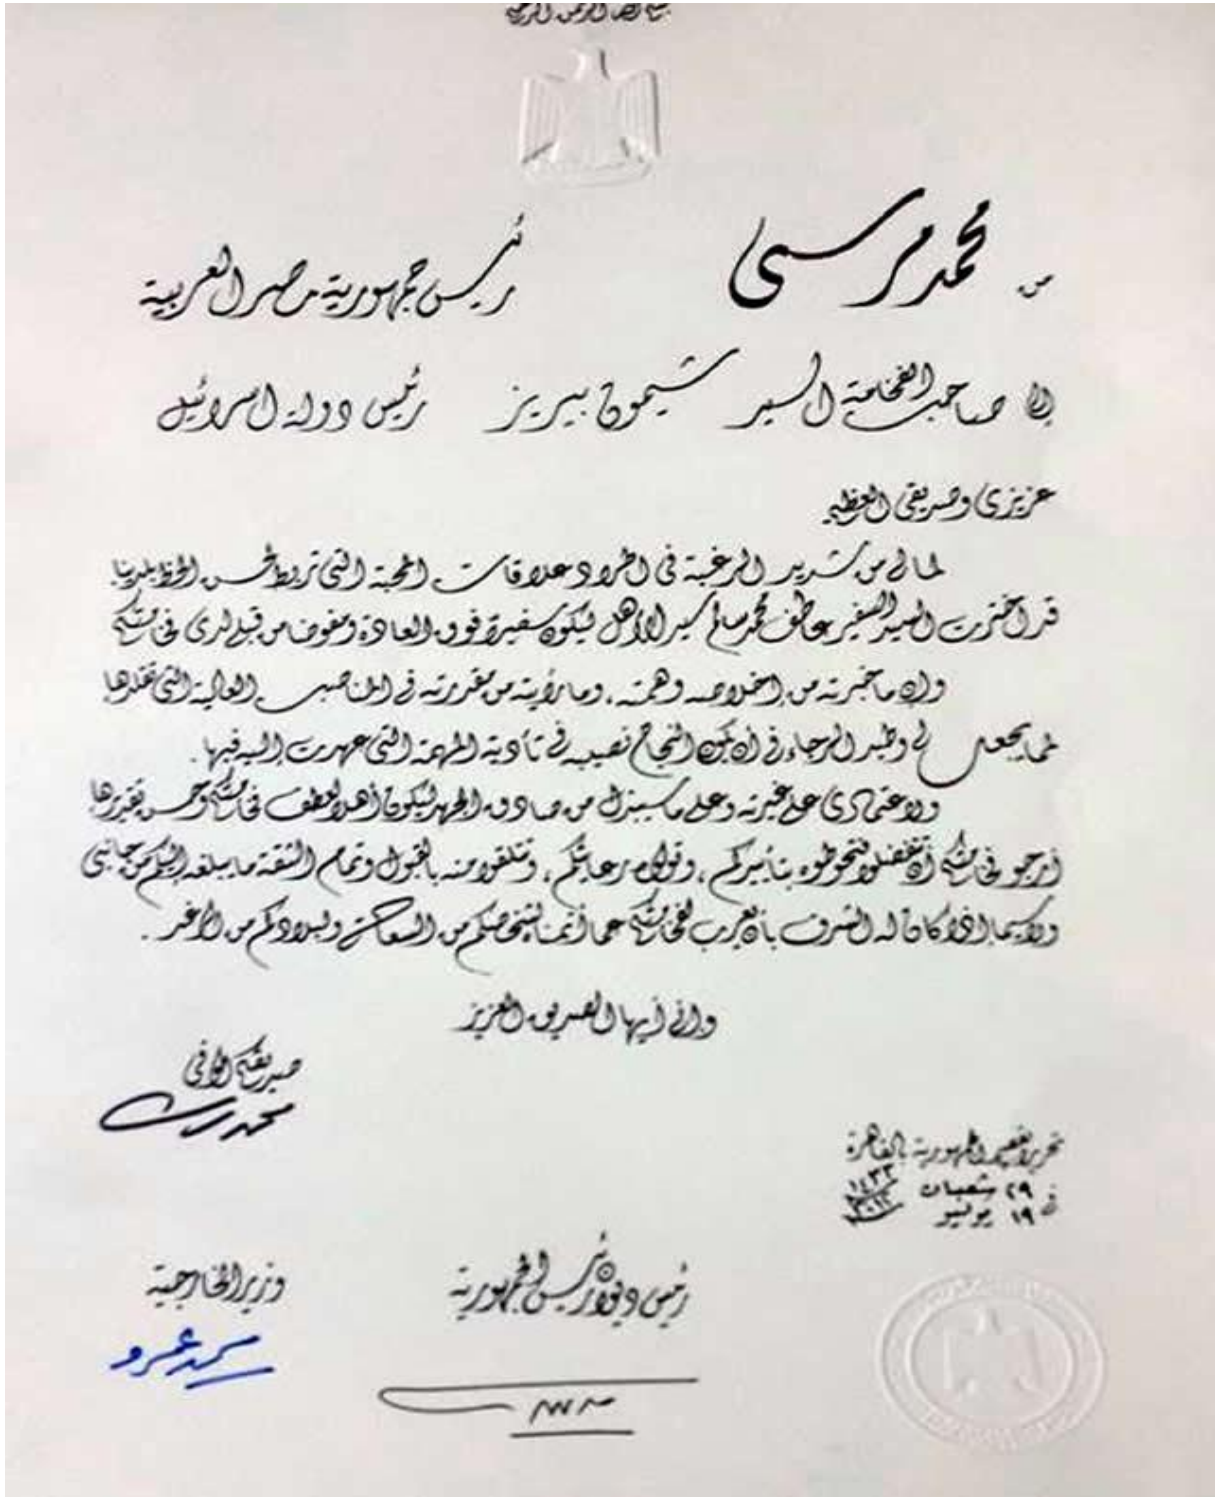 بسم الله الرحمن الرحيم
من محمد مرسى رئيس جمهورية مصر العربية
إلى صاحب الفخامة السيد شيمون بيريز رئيس دولة اسرائيل
عزيزى وصديقى العظيم
لما لى من شديد الرغبة فى اطراد علاقات المحبة التى تربط لحسن الحظ بلدينا
قد اخترت السيد السفير عاطف محمد سالم سيد الأهل ليكون سفيرا فوق العادة ومفوضا من قبلى لدى فخامتكم
وإن ما خبرته من إخلاصه وهمته ، وما رأيته من مقدرته فى المناصب العالية التى تقلدها
مما يجعل لى وطيد الرجاء فى أن يكون النجاح نصيبه فى تأدية المهمة التى عهدت إليه فيها .
ولاعتمادى على غيرته وعلى ما سيبذل من صادق الجهد ليكون أهلا لعطف فخامتكم وحسن تقديرها
أرجو فخامتكم أن تتفضلوا فتحوطوه بتأييدكم ، وتولوه رعايتكم ، وتتلقوا منه بالقبول وتمام الثقة ما يبلغه إليكم من جانبى
ولا سيما إذا كان له الشرف بأن يعرب لفخامتكم عما أتمناه لشخصكم من السعادة ولبلادكم من الرغد .
وإنى أيها الصديق العزيز
صديقكم الوفى
محمد مرسى
تحريرا بقصر الجمهورية بالقاهرة
فى ٢٩ شعبان ١٤٣٣
فى ١٩ يوليو ٢٠١٢
رئيس ديوان رئيس الجمهورية
وزير الخارجية
محمد عمرو